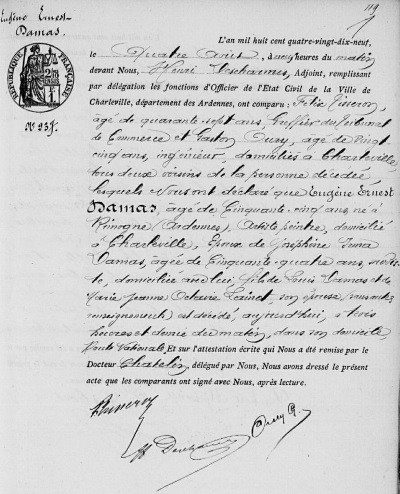 119
Eugène Ernest
Damas.
RÉPUBLIQUE FRANÇAISE
N° 237.
L'an mil huit cent quatre-vingt-dix-neuf,
le Quatre Août, à neuf heures du matin
devant Nous, Henri Deschannes, Adjoint, remplissant
par délégation les fonctions d'Officier de l'Etat Civil de la Ville de
Charleville, département des Ardennes, ont comparu: Félix
âgé de quarante-sept ans, Greffier du Tribunal
de Commerce et Gaston Oury, âgé de vingt
cinq ans, ingénieur, domiciliés à Charleville,
tous deux voisins de la personne décédée
lesquels Nous ont déclaré que Eugène Ernest
Damas, âgé de Cinquante-cinq ans, né à
Rimogne (Ardennes), Artiste peintre, domicilié
à Charleville, Epoux de Joséphine Irma
Damas, âgée de Cinquante-quatre ans,
domiciliée avec lui, fils de Louis Damas et de
Marie Jeanne Octavie son épouse (sans autres
renseignements) est décédé, aujourd'hui, à trois
heures et demie du matin, dans son domicile,
Nationale. Et sur l'attestation écrite qui Nous a été remise par le
Docteur Chatelin, délégué par Nous, Nous avons dressé le présent
acte que les comparants ont signé avec Nous, après lecture.
Oury G.